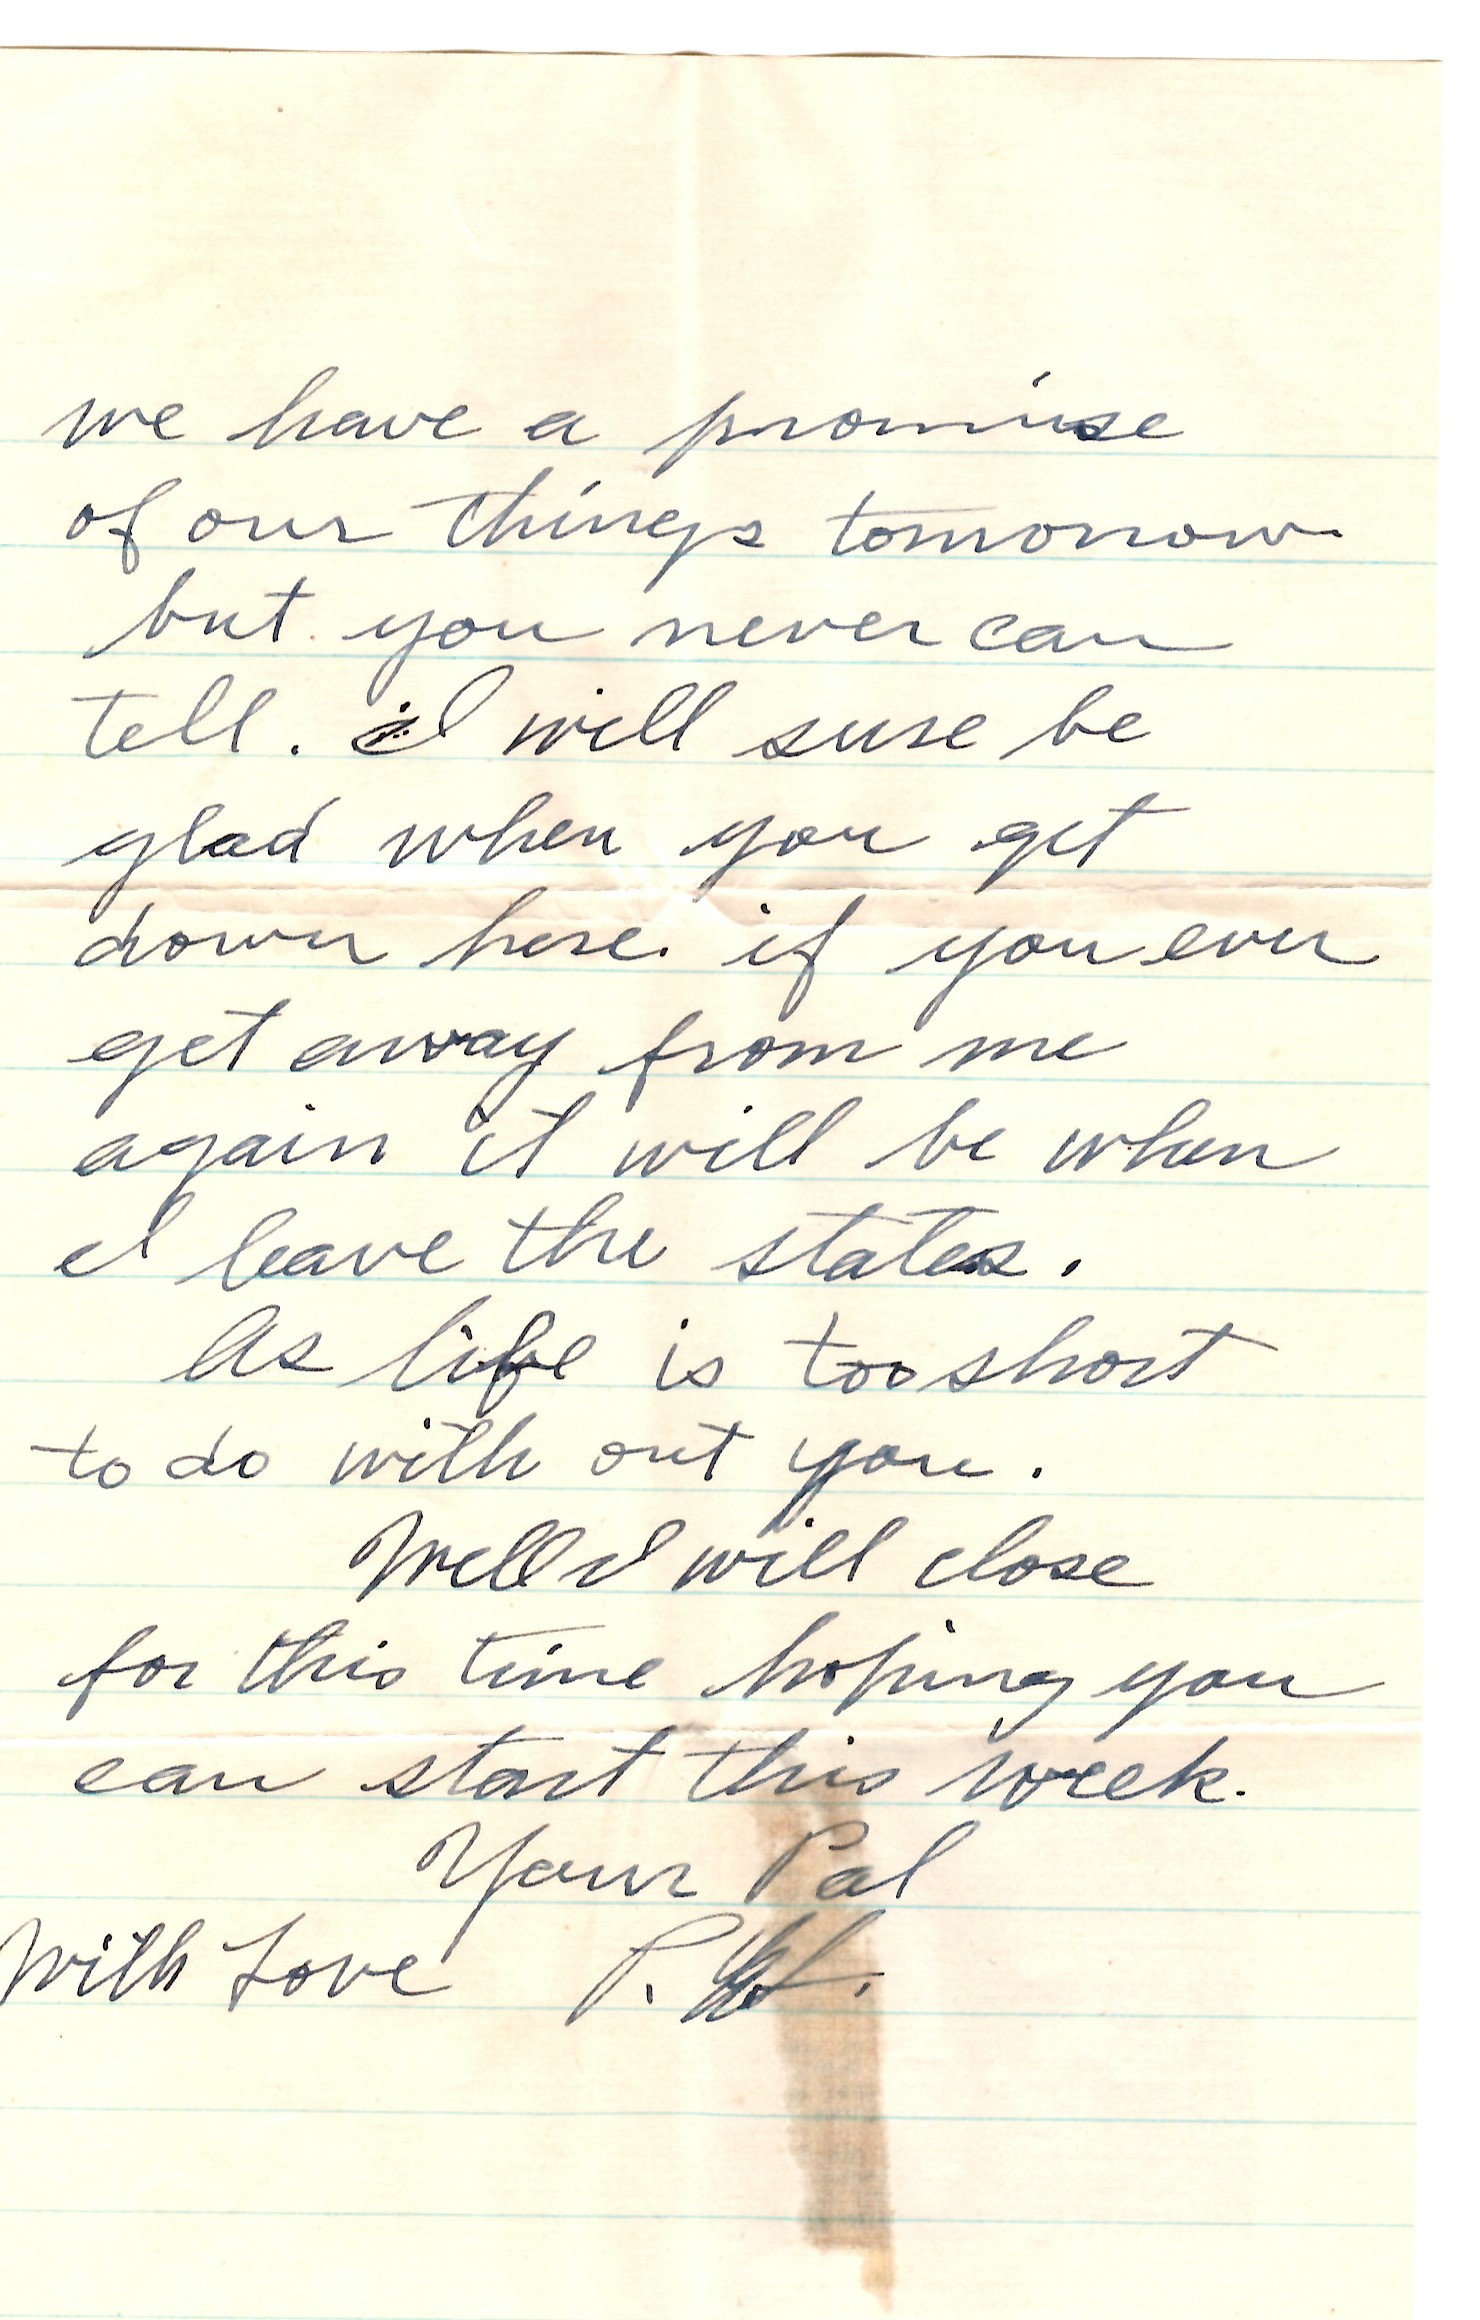 we have a promise
of our things tomorrow
but you never can
tell. I will sure be
glad when you get
down here. if you ever
get away from me
again it will be when
I leave the states.
As life is too short
to do with out you.
Well I will close
for this time hoping you
can start this week.
Your Pal
With Love P.